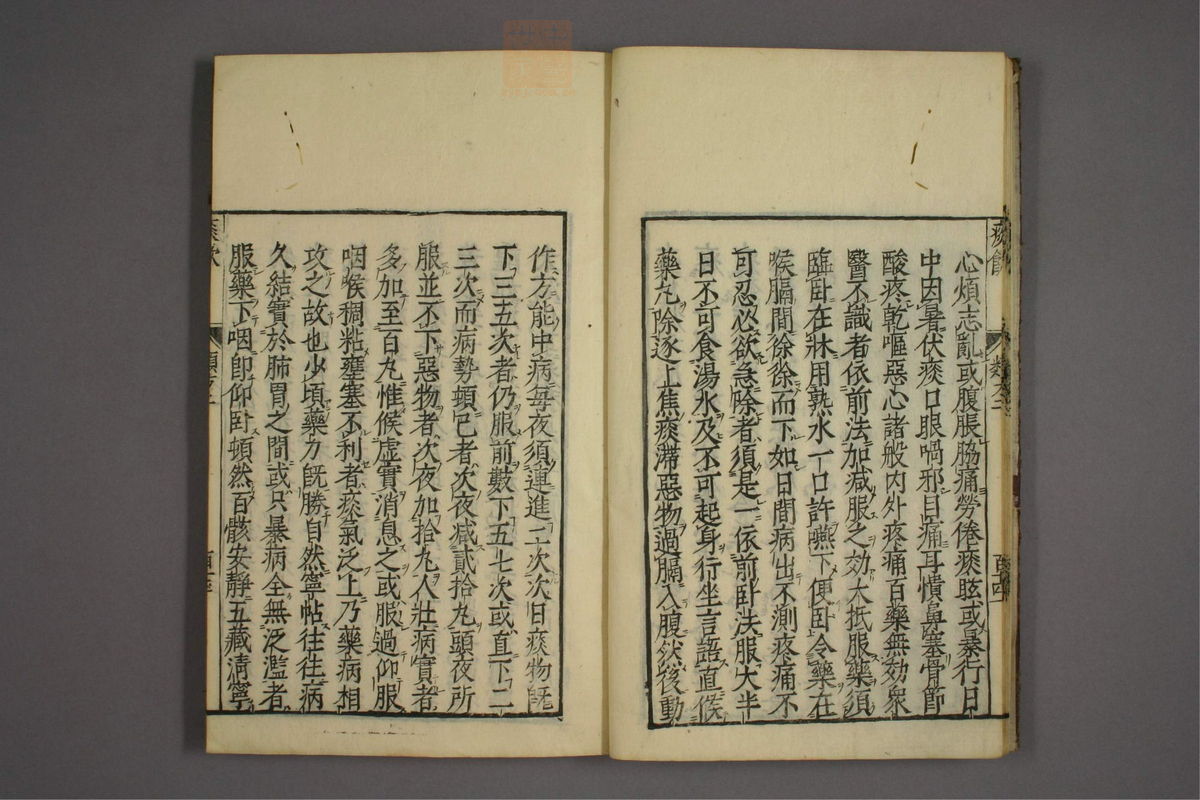 心煩志亂或腹脹脇痛勞倦痰眩或暴行日
中因暑伏痰口眼喎邪目痛耳憒鼻塞骨節
酸疼乾嘔惡心諸般内外疼痛百藥無効衆
醫不識者依前法加减服之効大抵服藥須
臨卧在牀用熟水一口許嚥下便卧令藥在
喉膈間徐徐而下如日間病出不測疼痛不
可忍必欲急除者須是一依前卧法服大半
日不可食湯水及不可起身行坐言語直候
藥丸除逐上焦痰滯惡物過膈入腹然後動
作方能中病每夜須連進二次次日痰物旣
下三五次者仍服前數下五七次或直下二
三次而病勢頓已者次夜减貳拾丸頭夜所
服並不下惡物者次夜加拾丸人壯病實者
多加至百丸惟候虚實消息之或服過仰服
咽喉稠粘壅塞不利者痰氣泛上乃藥病相
攻之故也少頃藥力旣勝自然寧帖往往病
久結實於肺胃之間或只暴病全無泛濫者
服藥下咽即仰卧頓然百骸安靜五藏淸寧